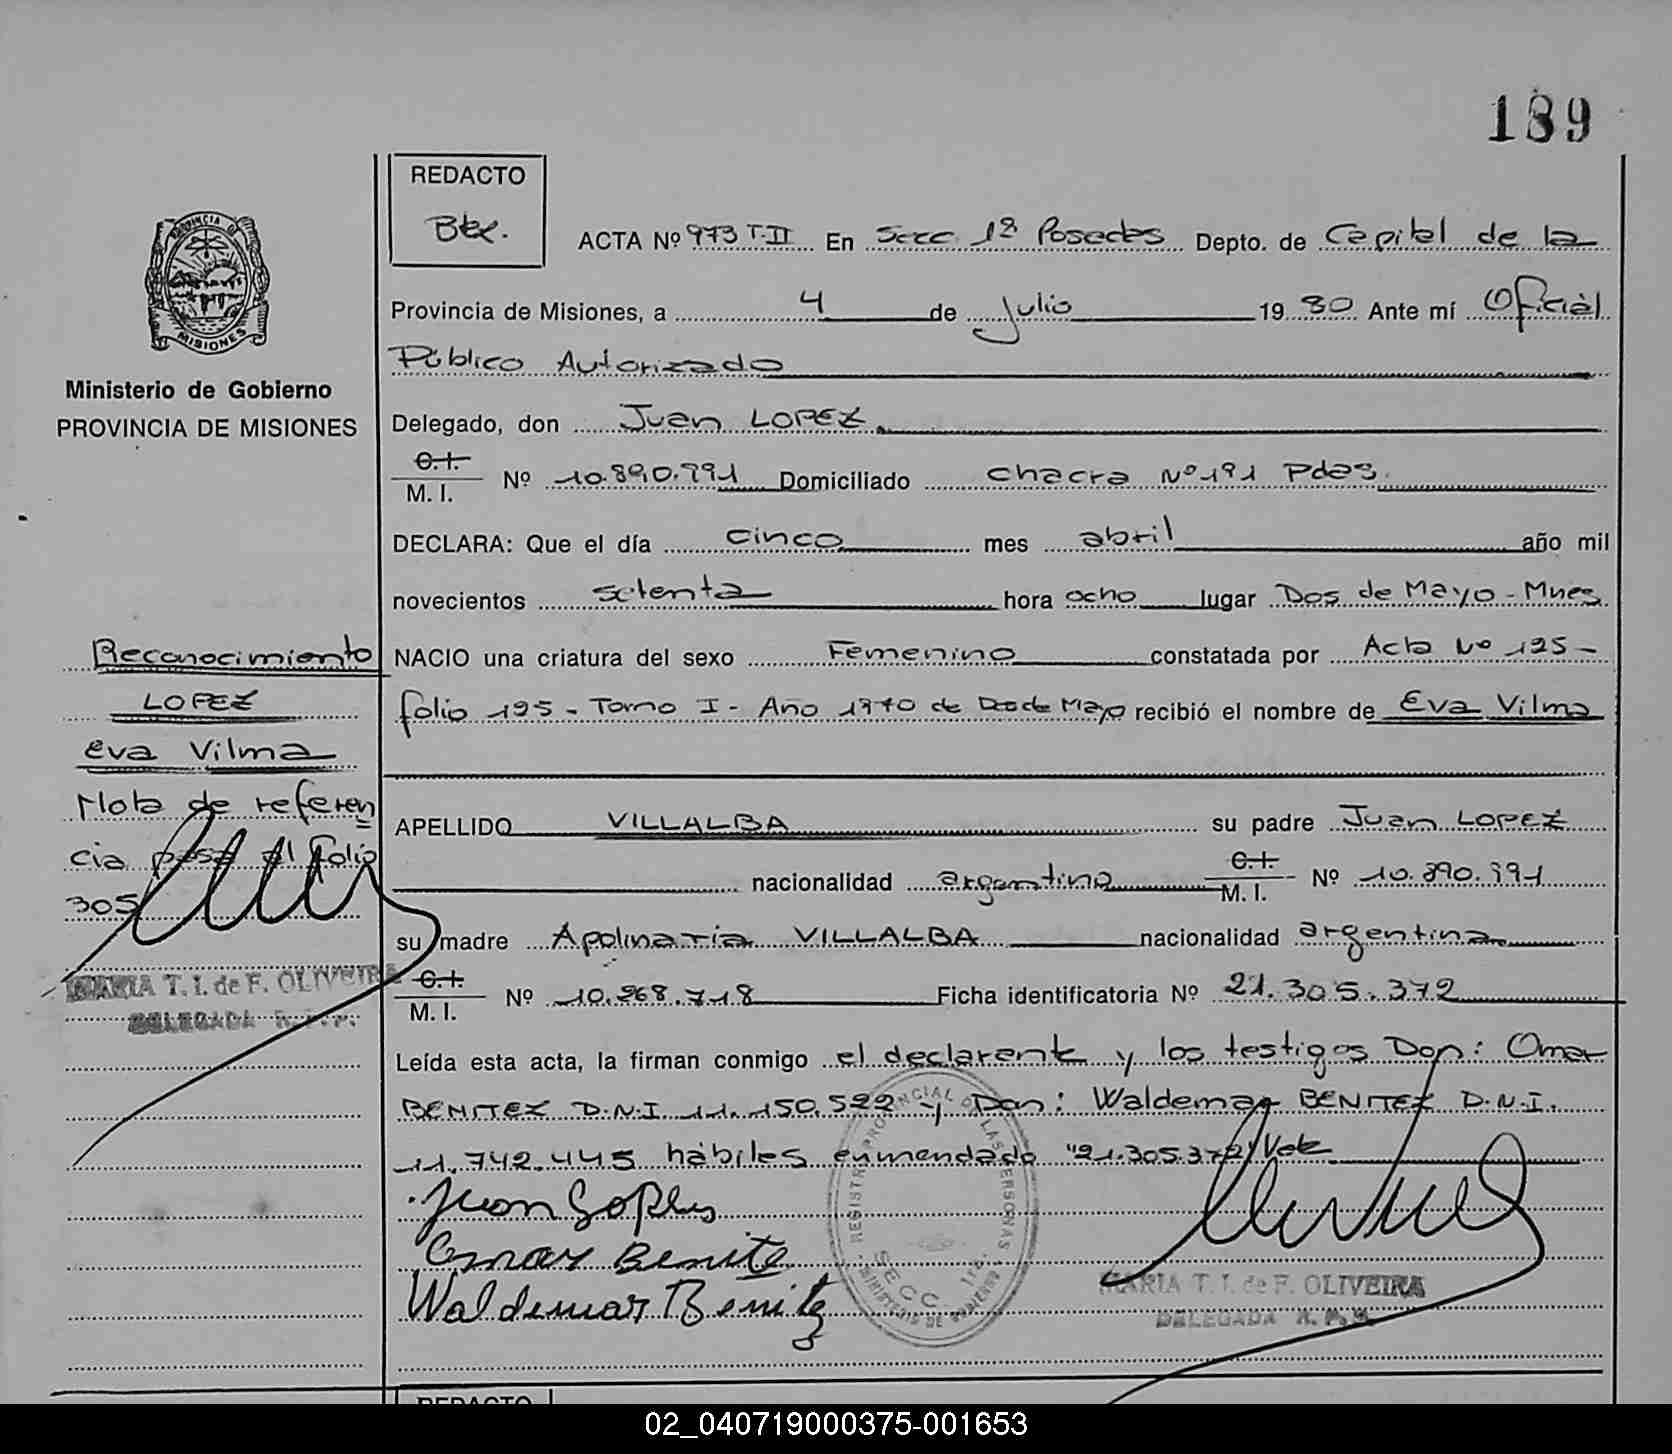 189
REDACTO
Btx.
ACTA Nº 973 T.II En Secc. 1ª Posadas Depto. de Capital de la
Provincia de Misiones, a 4 de Julio 1980 Ante mí Oficial
Público Autorizado
Delegado, don Juan LOPEZ
C.I. / M. I. Nº 10.890.991 Domiciliado Chacra Nº 191 Pdas.
DECLARA: Que el día cinco mes abril año mil
novecientos setenta hora ocho lugar Dos de Mayo - Mnes
NACIO una criatura del sexo Femenino constatada por Acta Nº 195 -
folio 195 - Tomo I - Año 1970 de Dos de Mayo recibió el nombre de Eva Vilma
APELLIDO VILLALBA su padre Juan LOPEZ
nacionalidad argentino C.I. / M. I. Nº 10.890.991
su madre Apolinaria VILLALBA nacionalidad argentina
C.I. / M. I. Nº 10.268.718 Ficha identificatoria Nº 21.305.372
Leída esta acta, la firman conmigo el declarante y los testigos Don: Omar
BENITEZ D.N.I 11.150.522 y Don: Waldemar BENITEZ D.N.I.
11.742.445 hábiles enmendado "21.305.372" Vale
Juan Lopes
Omar Benite
Waldemar Benitez
REGISTRO PROVINCIAL DE LAS PERSONAS
SECC. 1ra.
MINISTERIO DE GOBIERNO
MARIA T. I. de F. OLIVEIRA
DELEGADA R. P. P.
PROVINCIA DE MISIONES
Ministerio de Gobierno
PROVINCIA DE MISIONES
Reconocimiento
LOPEZ
Eva Vilma
Nota de referen
cia pasa al folio
305
MARIA T. I. de F. OLIVEIRA
DELEGADA R. P. P.
REDACTO
02_040719000375-001653